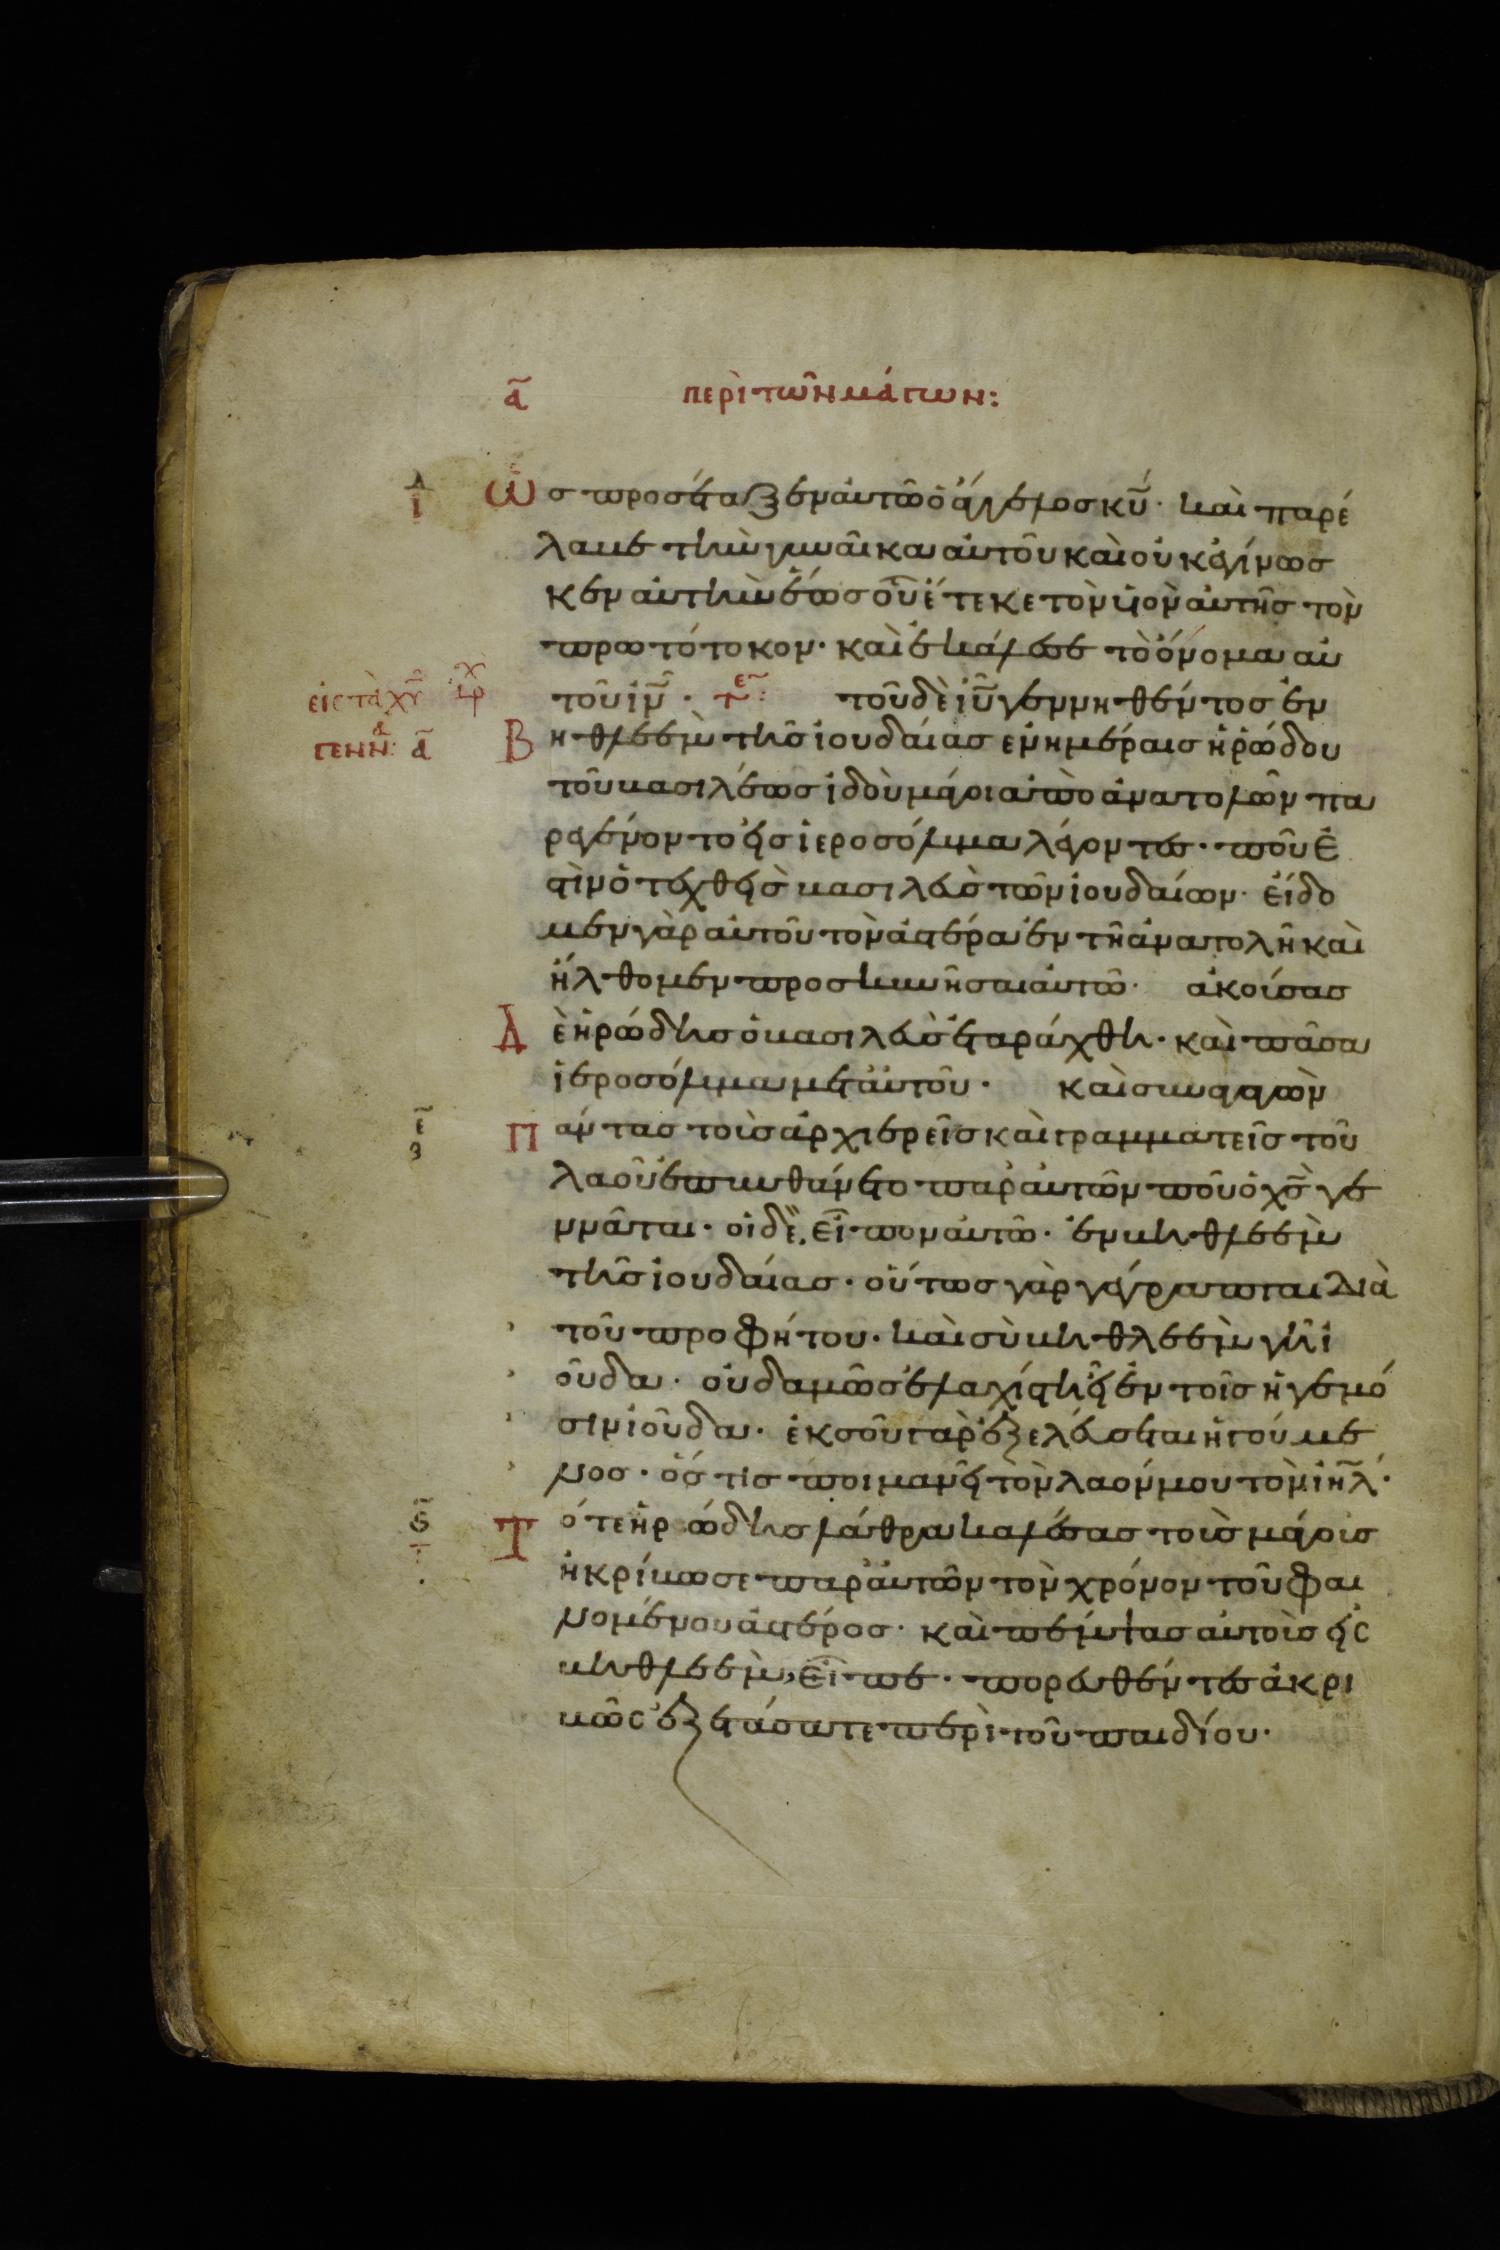 α̃ περὶ τῶν μάγων:
ὡς προσέταξεν αὐτῶ ὁ ἄγγελος κ̅υ̅· καὶ παρέ
λαβε τὴν γυναῖκα αὐτοῦ καὶ οὐκ ἐγίνωσ
κεν αὐτὴν ἕως οὗ ἔτεκε τὸν υἱὸν αὐτῆς τὸν
πρωτότοκον· καὶ ἐκάλεσε τὸ ὄνομα αὐ
τοῦ ι̅ν̅· τοῦ δὲ ι̅υ̅ γεννηθέντος ἐν
Βηθλεὲμ τῆς ἰουδαίας ἐν ἡμέραις ἡρώδου
τοῦ βασιλέως ἰδοὺ μάγοι ἀπὸ ἀνατολῶν πα
ρεγένοντο εἰς ἱεροσόλυμα λέγοντες· ποῦ ἐ
στὶν ὁ τεχθεὶς βασιλεὺς τῶν ἰουδαίων· εἴδο
μεν γὰρ αὐτοῦ τὸν ἀστέρα ἐν τῆ ἀνατολῆ καὶ
ἤλθομεν προσκυνῆσαι αὐτῶ· ἀκούσας
Δὲ ἡρώδης ὁ βασιλεὺς ἐταράχθη· καὶ πᾶσα
ἱεροσόλυμα μετ' αὐτοῦ· καὶ συναγαγὼν
Πάντας τοὺς ἀρχιερεῖς καὶ γραμματεῖς τοῦ
λαοῦ ἐπυνθάνετο παρ' αὐτῶν ποῦ ὁ χ̅ς̅ γε
ννᾶται· οἱ δὲ, εἶπον αὐτῶ· ἐν βηθλεὲμ
τῆς ἰουδαίας· οὕτως γὰρ γέγραπται διὰ
τοῦ προφήτου· καὶ σὺ βηθλεὲμ γῆ ἰ
οῦδα· οὐδαμῶς ἐλαχίστη εἶ ἐν τοῖς ἡγεμό
σιν ἰοῦδα· ἐκ σοῦ γὰρ ἐξελεύσεται ἡγούμε
νος· ὅς τις ποιμανεῖ τὸν λαόν μου τὸν ι̅η̅λ̅·
Τότε ἡρώδης λάθρα καλέσας τοὺς μάγους
ἠκρίβωσε παρ' αὐτῶν τὸν χρόνον τοῦ φαι
νομένου ἀστέρος· καὶ πέμψας αὐτοὺς εἰς
βηθλεὲμ, εἶπε· πορευθέντες ἀκρι
βῶς ἐξετάσατε περὶ τοῦ παιδίου·